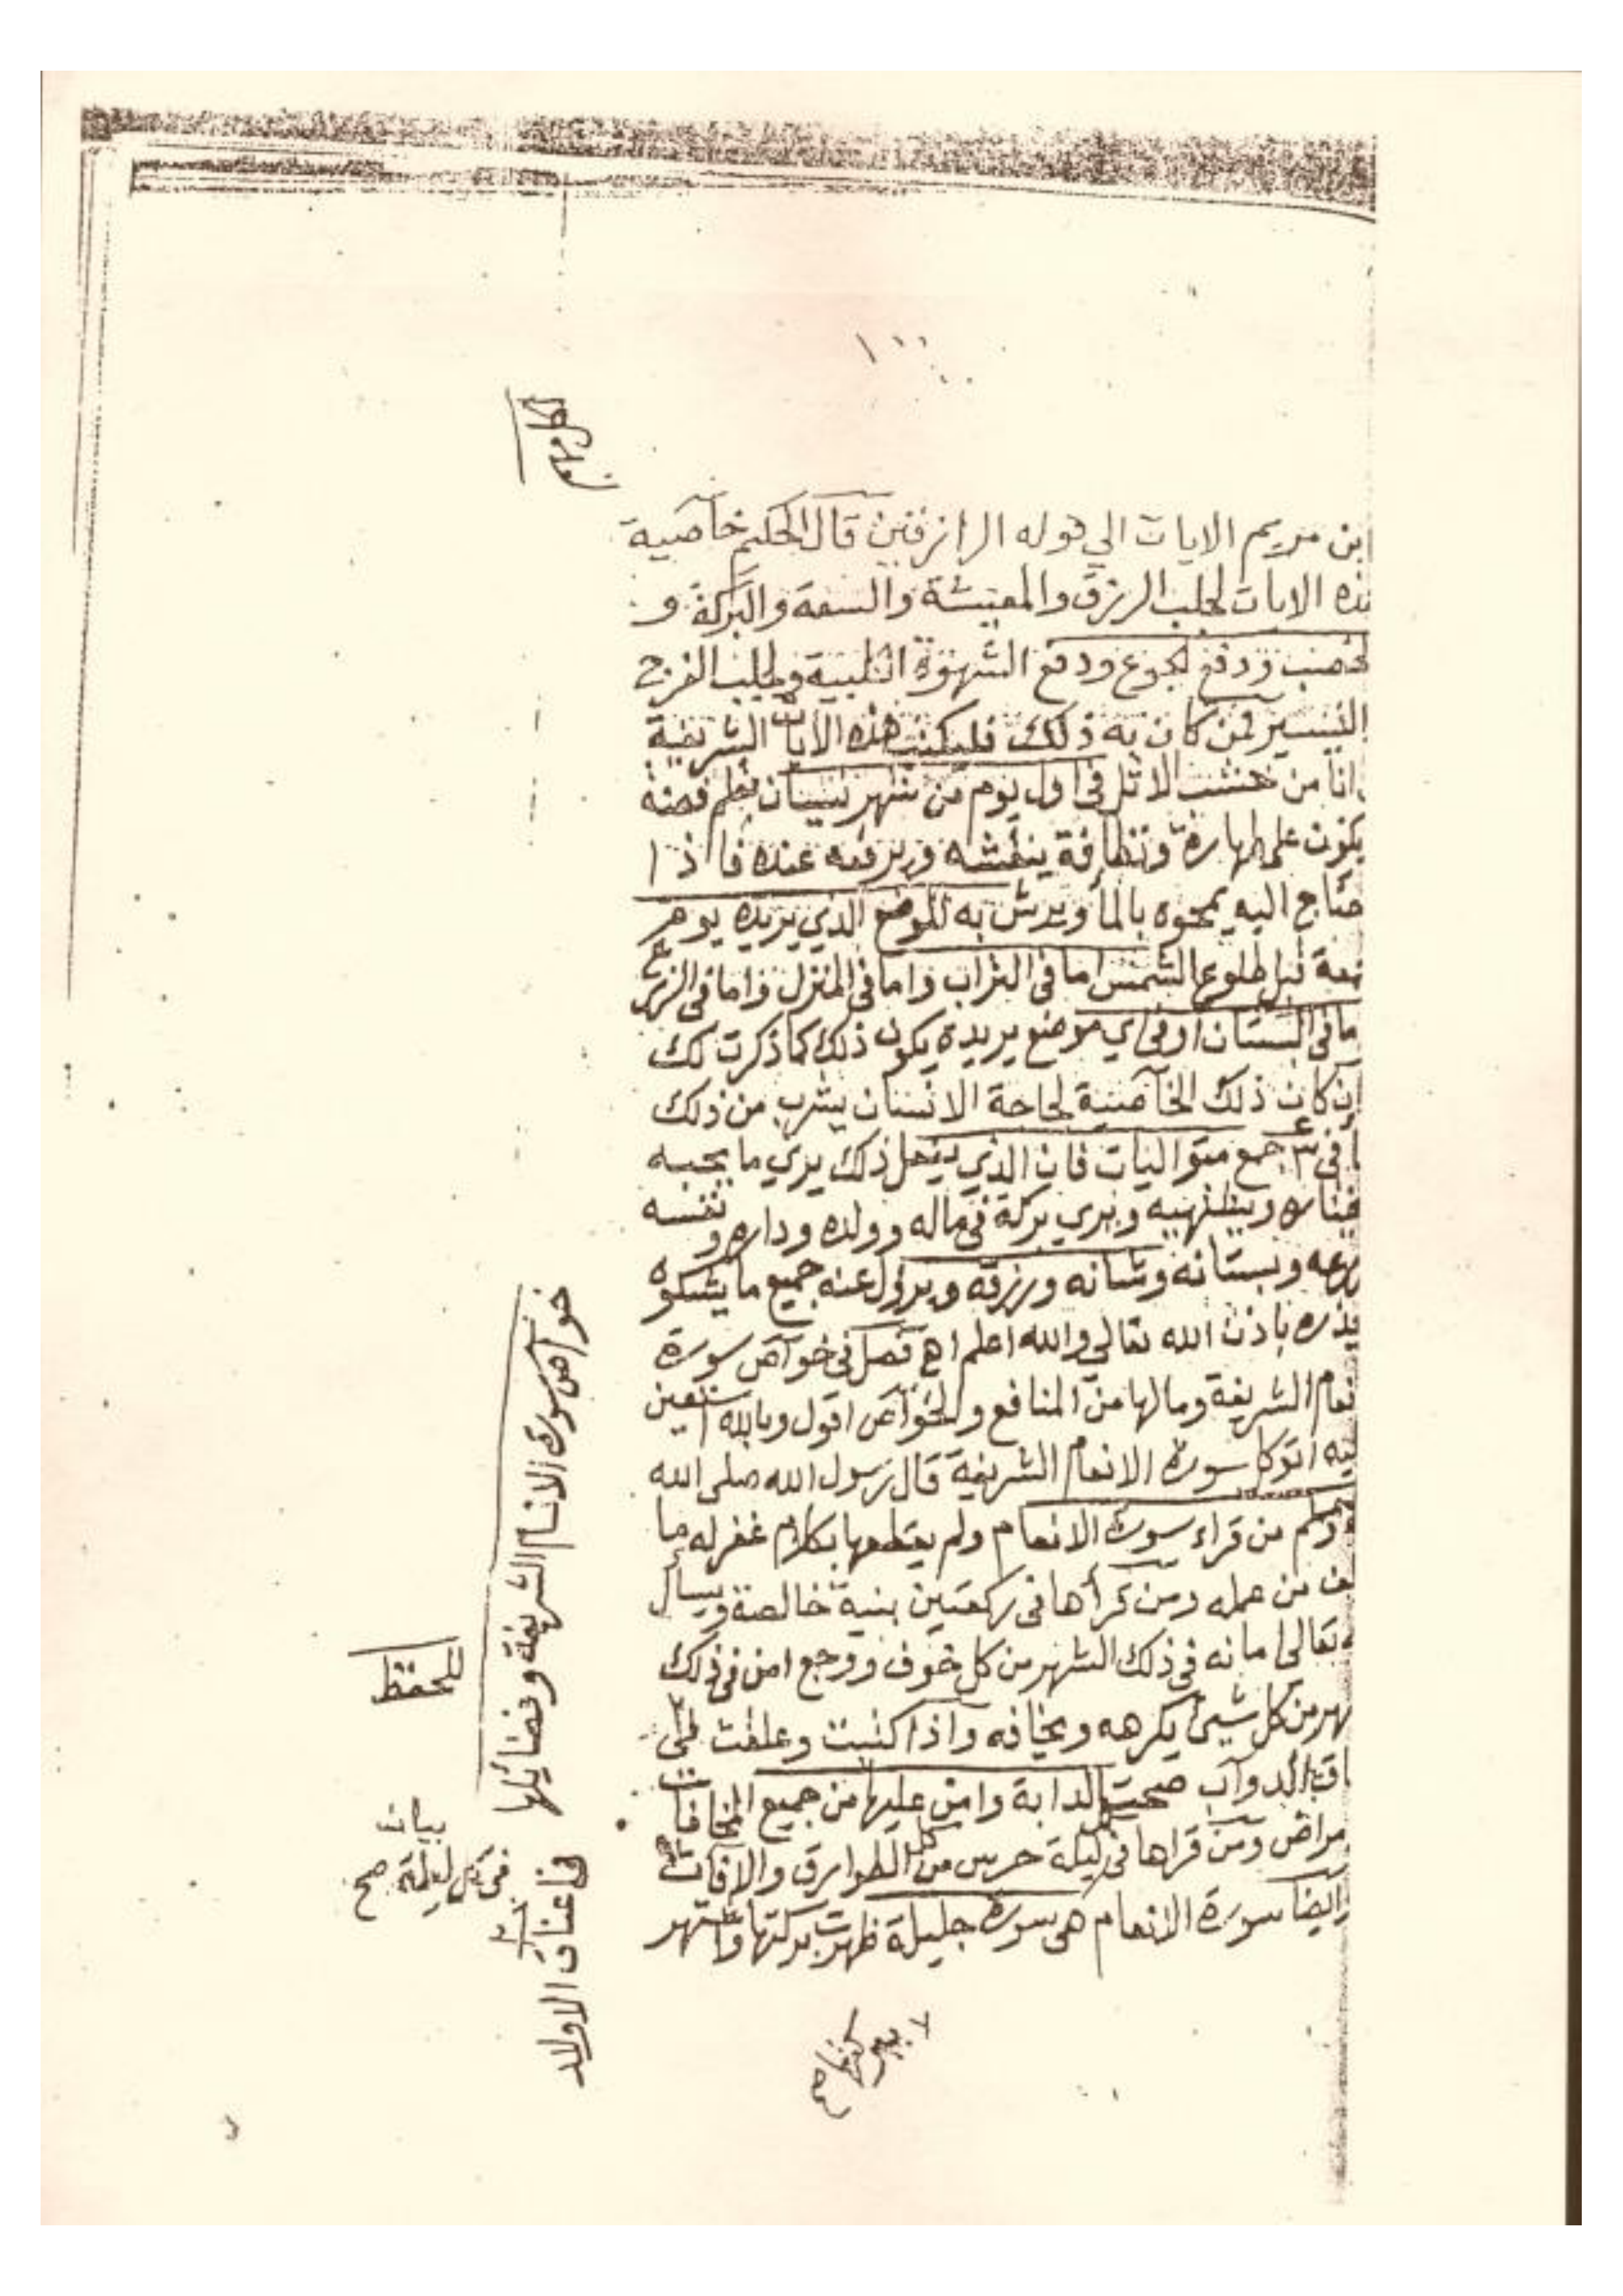 ١٠٠
ابن مريم الايات الي قوله الرازقين قال الحكيم خاصية
ذه الايات لجلب الرزق والمعيشة والسعة والبركة و
لخصب ودفع لجوع ودفع الشهوة الكلبية ولجلب الفرح
التيسير فمن كان به ذلك فليكتب هذه الايات الشريفة
انا من خشب الاثل في اول يوم من شهر نيسان بقلم فضة
يكون على طهارة ونظافة ينقشه ويرفعه عنده فاذا
حتاج اليه يمحوه بالمأ ويرش به الموضع الذي يريده يوم
معة قبل طلوع الشمس اما في التراب واما في المنزل واما في الزرع
ما في البستان او في اي موضع يريده يكون ذلك كما ذكرت لك
ان كان ذلك الخاصية لحاجة الانسان يشرب من ذلك
في ٣ جمع متواليات فان الذي يفعل ذلك يري ما يحبه
ويشتهيه ويري بركة في ماله وولده وداره ونفسه
زرعه وبستانه وشانه ورزقه ويزول عنه جميع ما يشكوه
يذره باذن الله تعالي والله اعلم اھ فصل في خواص سورة
نعام الشريفة ومالها من المنافع والخواص اقول وبالله استعين
ليه اتوكل سورة الانعام الشريفة قال رسول الله صلى الله
وسلم من قراء سورة الانعام ولم يقطعها بكلام غفر له ما
لف من عمله ومن قرأها في ركعتين بنية خالصة ويسأل
ه تعالى امانه في ذلك الشهر من كل خوف ووجع امن في ذلك
هر من كل شيئ يكرهه ويخافه واذا كتبت وعلقت على
الدواب صحت الدابة وامن عليها من جميع المخافات
مراض ومن قراها في ليلة حرس من كل الطوارق والافات
وايضا سورة الانعام هي سورة جليلة ظهرت بركتها واشتهر
خواص سورة الانعام الشريفة وفضائلها
للحفظ
بيان
في كل ليلة صح
في اعناق الاولاد